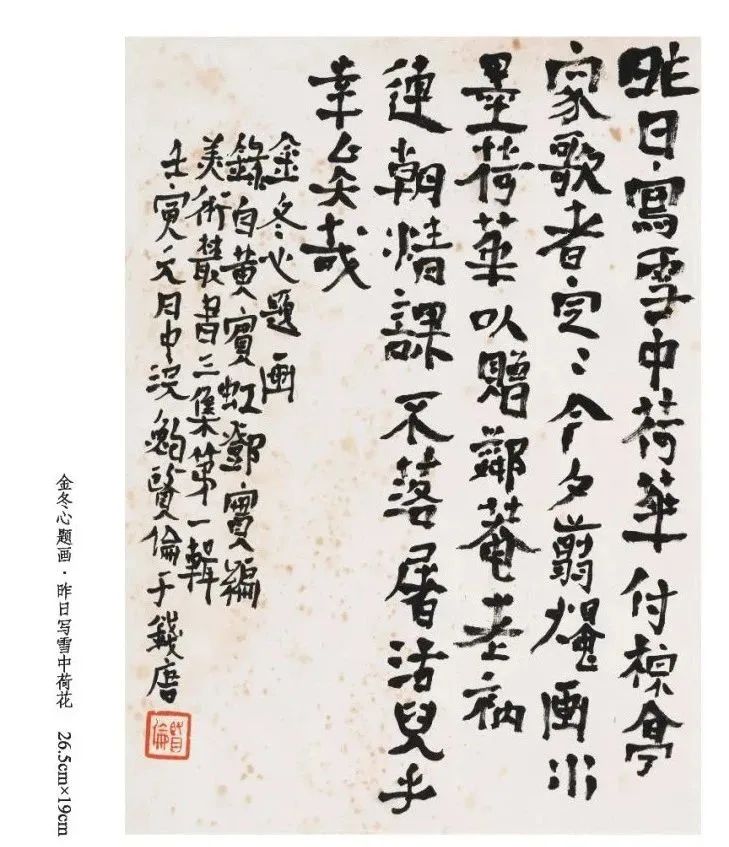 昨日寫雪中荷華付棕亭
家歌者定〻今夕翦燭画水
墨荷華以贈鄰菴老衲
連朝清課不落屠沽兒手
幸矣哉
金冬心題画
錄自黄賓虹鄧實編
美術叢書三集第一輯
壬寅元月中浣賢倫于錢唐
賢倫
金冬心题画·昨日写雪中荷花 26.5cm×19cm